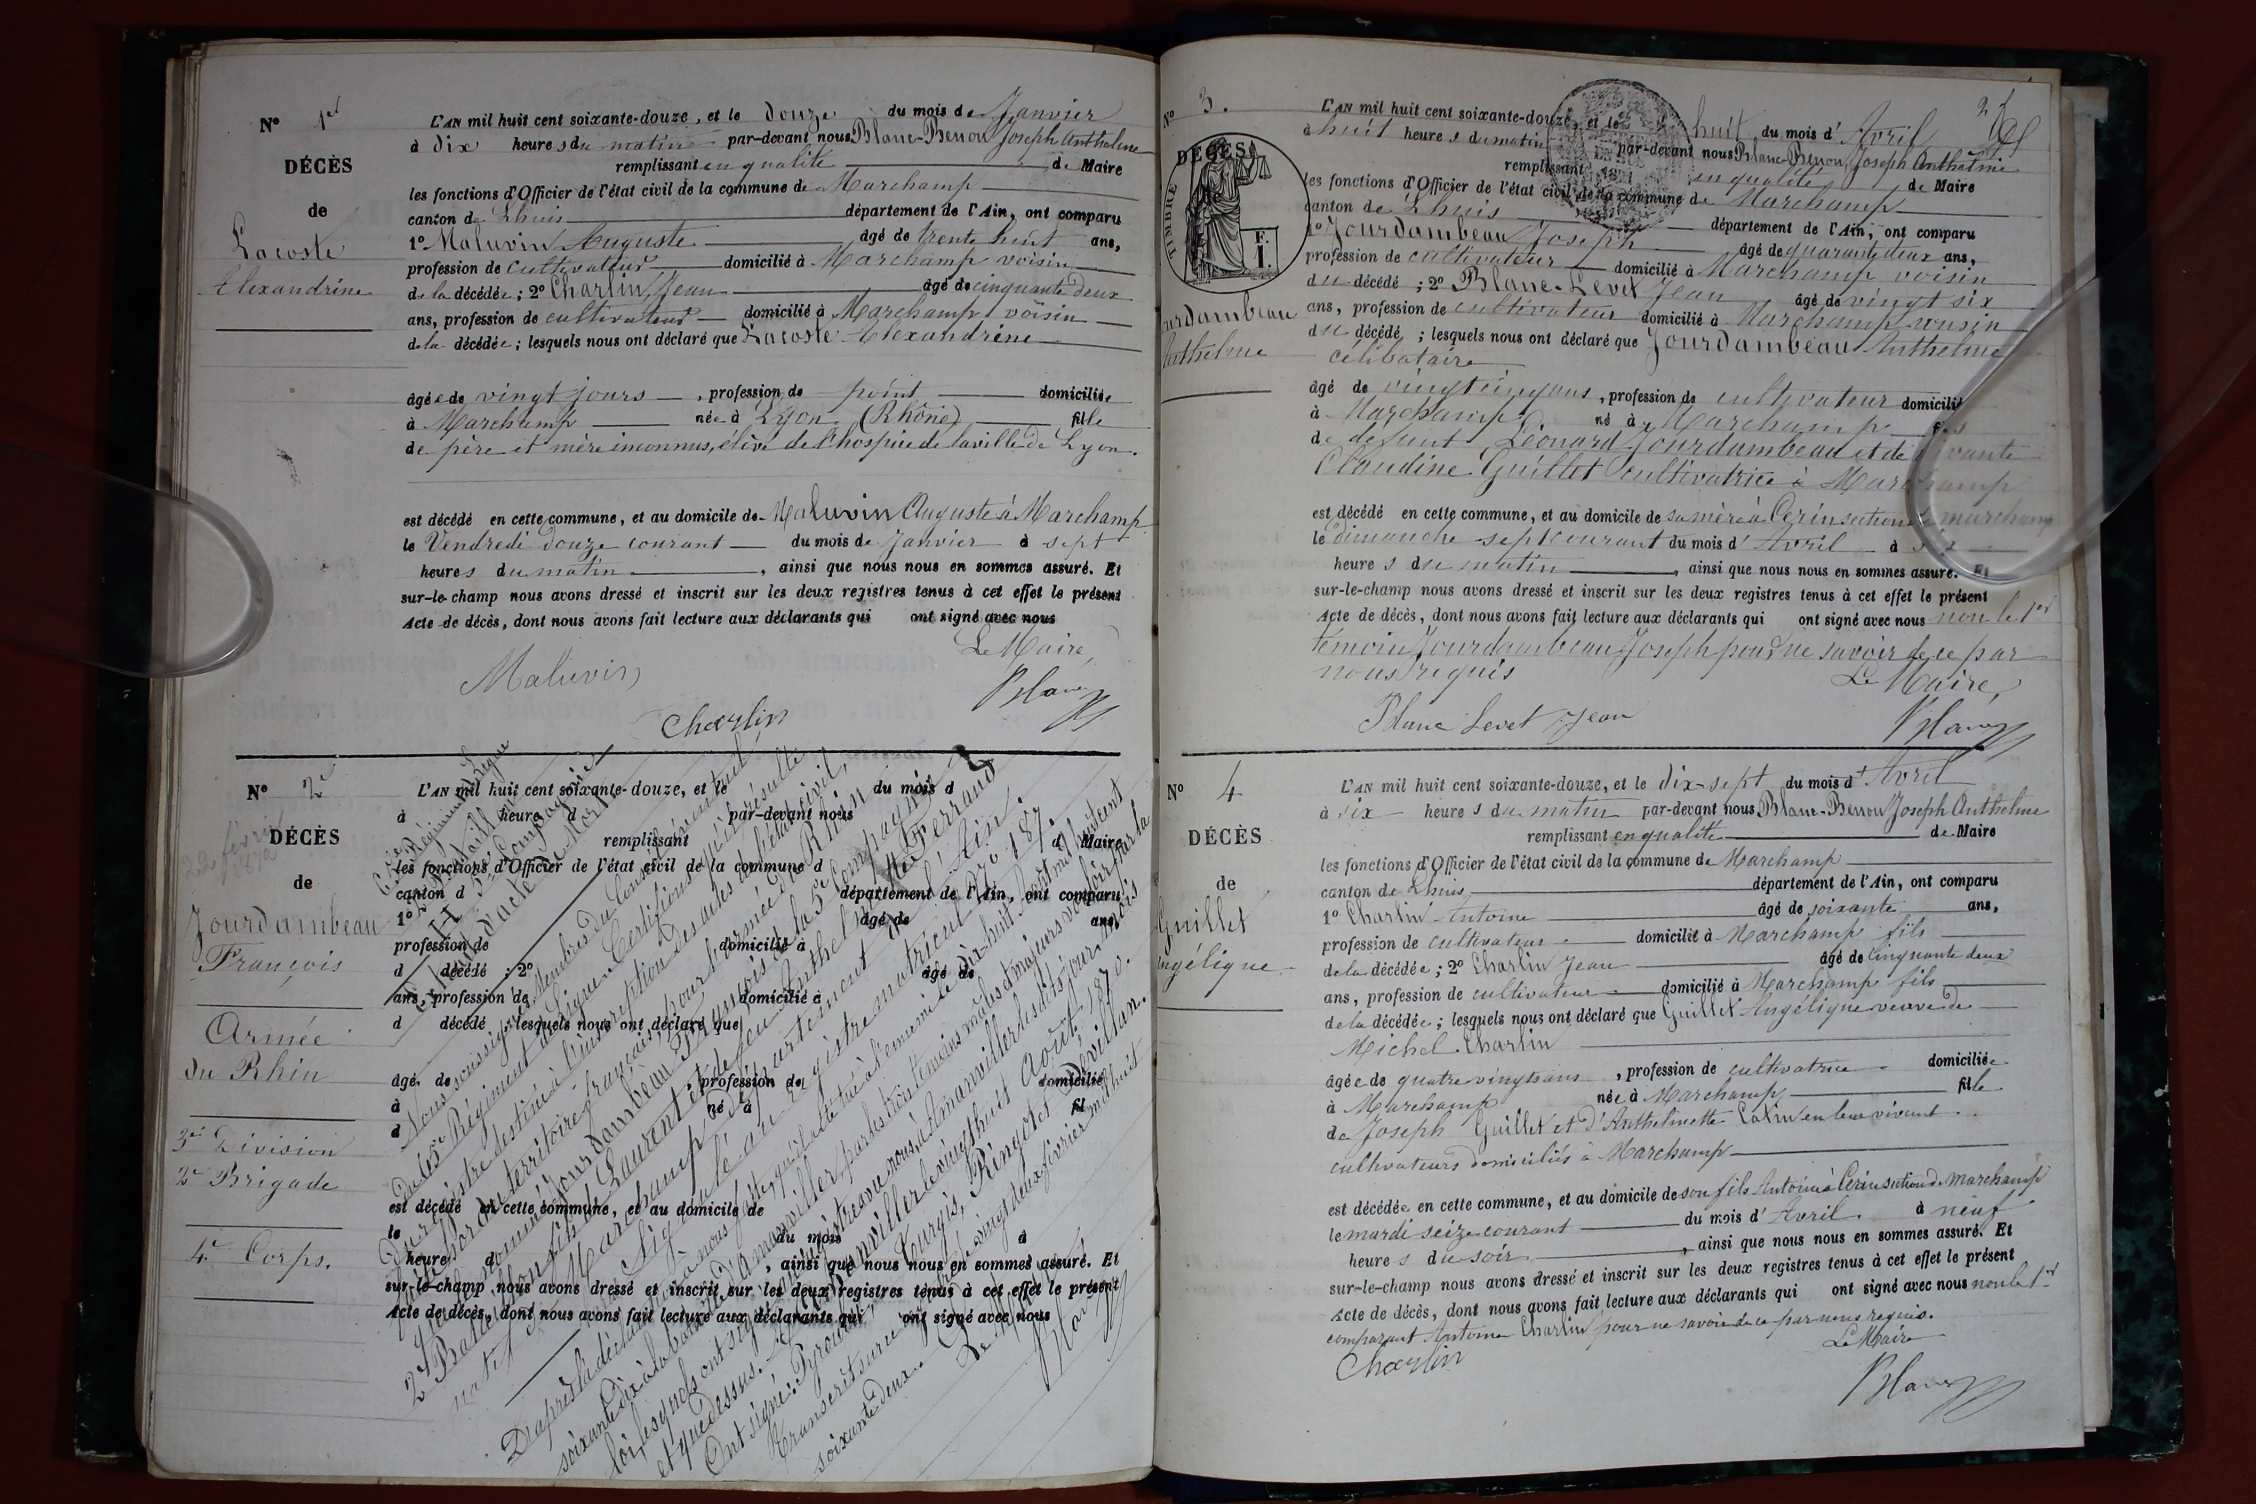 N° 1er
DÉCÈS
de
Lacoste
Alexandrine
L'AN mil huit cent soixante-douze, et le douze du mois de Janvier
à dix heures du matin par-devant nous Blanc-Benon Joseph Anthelme
remplissant en qualité de Maire
les fonctions d'Officier de l'état civil de la commune de Marchamp
canton de Lhuis département de l'Ain, ont comparu
1° Maluvin Auguste âgé de trente huit ans,
profession de cultivateur domicilié à Marchamp voisin
de la décédée ; 2° Charlin Jean âgé de cinquante deux
ans, profession de cultivateur domicilié à Marchamp voisin
de la décédée ; lesquels nous ont déclaré que Lacoste Alexandrine
âgée de vingt jours, profession de point domiciliée
à Marchamp née à Lyon (Rhône) fille
de père et mère inconnus, élève de l'hospice de la ville de Lyon.
est décédé en cette commune, et au domicile de Maluvin Auguste à Marchamp
le Vendredi douze courant du mois de Janvier à sept
heures du matin, ainsi que nous nous en sommes assuré. Et
sur-le-champ nous avons dressé et inscrit sur les deux registres tenus à cet effet le présent
Acte de décès, dont nous avons fait lecture aux déclarants qui ont signé avec nous
Le Maire,
Maluvin
Charlin
Blanc
N° 2e
22 février 1872
DÉCÈS
de
Jourdambeau
François
Armée
du Rhin
3e Division
2e Brigade
4e Corps.
L'AN mil huit cent soixante-douze, et le du mois d
à heure d par-devant nous
remplissant d Maire
les fonctions d'Officier de l'état civil de la commune d
canton d département de l'Ain, ont comparu
1° âgé de ans,
profession de domicilié à
d décédé ; 2° âgé de
ans, profession de domicilié à
d décédé ; lesquels nous ont déclaré que
âgé de profession de domicilié
à né à fil
d
est décédé en cette commune, et au domicile de
le du mois à
heure d, ainsi que nous nous en sommes assuré. Et
sur-le-champ nous avons dressé et inscrit sur les deux registres tenus à cet effet le présent
Acte de décès, dont nous avons fait lecture aux déclarants qui ont signé avec nous
Régiment de Ligne
2e Bataillon
5e Compagnie
Extrait d'acte de Mort
Nous soussignés, Membres du Conseil éventuel
Régiment de Ligne Certifions qu'il résulte
du registre destiné à l'inscription des actes de l'état civil
hors du territoire français pour l'armée du Rhin
que le nommé Jourdambeau François de la 5e Compagnie
2e Bataillon fils de Laurent et de feu Anthelmette Ferrand
natif de Marchamp département de l'Ain.
Signalé au registre matricule
D'après la déclaration à nous faite qu'il a été tué à l'ennemi le dix-huit Août mil huit cent
soixante dix à la bataille d'Amanviller par les témoins mâles et majeurs voulus par la
loi, lesquels ont signé au registre avec nous à Amanviller les dits jour mois
et que dessus. Amanviller le vingt huit Août 1870.
Ont signé: Ringotet Dévillan.
Transcrit sur le vingt deux février mil huit
soixante deux
Le Maire
Blanc
N° 3.
DÉCÈS
TIMBRE
F. 1.
Jourdambeau
Anthelme
L'AN mil huit cent soixante-douze, et le huit du mois d'Avril
à huit heures du matin par-devant nous Blanc-Benon Joseph Anthelme
remplissant en qualité de Maire
les fonctions d'Officier de l'état civil de la commune de Marchamp
canton de Lhuis département de l'Ain, ont comparu
1° Jourdambeau Joseph âgé de quarante deux ans,
profession de cultivateur domicilié à Marchamp voisin
du décédé ; 2° Blanc-Levet Jean âgé de vingt six
ans, profession de cultivateur domicilié à Marchamp voisin
du décédé ; lesquels nous ont déclaré que Jourdambeau Anthelme
célibataire
âgé de vingt cinq ans, profession de cultivateur domicilié
à Marchamp né à Marchamp fils
de défunt Léonard Jourdambeau et de vivante
Claudine Guillot cultivatrice à Marchamp
est décédé en cette commune, et au domicile de sa mère à Cerin section de marchamp
le dimanche sept courant du mois d'Avril à
heures du matin, ainsi que nous nous en sommes assuré. Et
sur-le-champ nous avons dressé et inscrit sur les deux registres tenus à cet effet le présent
Acte de décès, dont nous avons fait lecture aux déclarants qui ont signé avec nous non le 1er
témoin Jourdambeau Joseph pour ne savoir de ce par
nous requis
Le Maire,
Blanc Levet Jean
Blanc
N° 4
DÉCÈS
de
Guillet
Angélique
L'AN mil huit cent soixante-douze, et le dix-sept du mois d'Avril
à six heures du matin par-devant nous Blanc-Benon Joseph Anthelme
remplissant en qualité de Maire
les fonctions d'Officier de l'état civil de la commune de Marchamp
canton de Lhuis département de l'Ain, ont comparu
1° Charlin Antoine âgé de soixante ans,
profession de cultivateur domicilié à Marchamp fils
de la décédée ; 2° Charlin Jean âgé de Cinquante deux
ans, profession de cultivateur domicilié à Marchamp fils
de la décédée ; lesquels nous ont déclaré que Guillet Angélique veuve de
Michel Charlin
âgée de quatre vingts ans, profession de cultivatrice domiciliée
à Marchamp née à Marchamp fille
de Joseph Guillet et d'Anthelmette Catin en leur vivant
cultivateurs domiciliés à Marchamp
est décédée en cette commune, et au domicile de son fils Antoine à Cerin section de Marchamp
le mardi seize courant du mois d'Avril à neuf
heures du soir, ainsi que nous nous en sommes assuré. Et
sur-le-champ nous avons dressé et inscrit sur les deux registres tenus à cet effet le présent
Acte de décès, dont nous avons fait lecture aux déclarants qui ont signé avec nous non le 1er
comparant Antoine Charlin pour ne savoir de ce par nous requis.
Le Maire
Charlin
Blanc